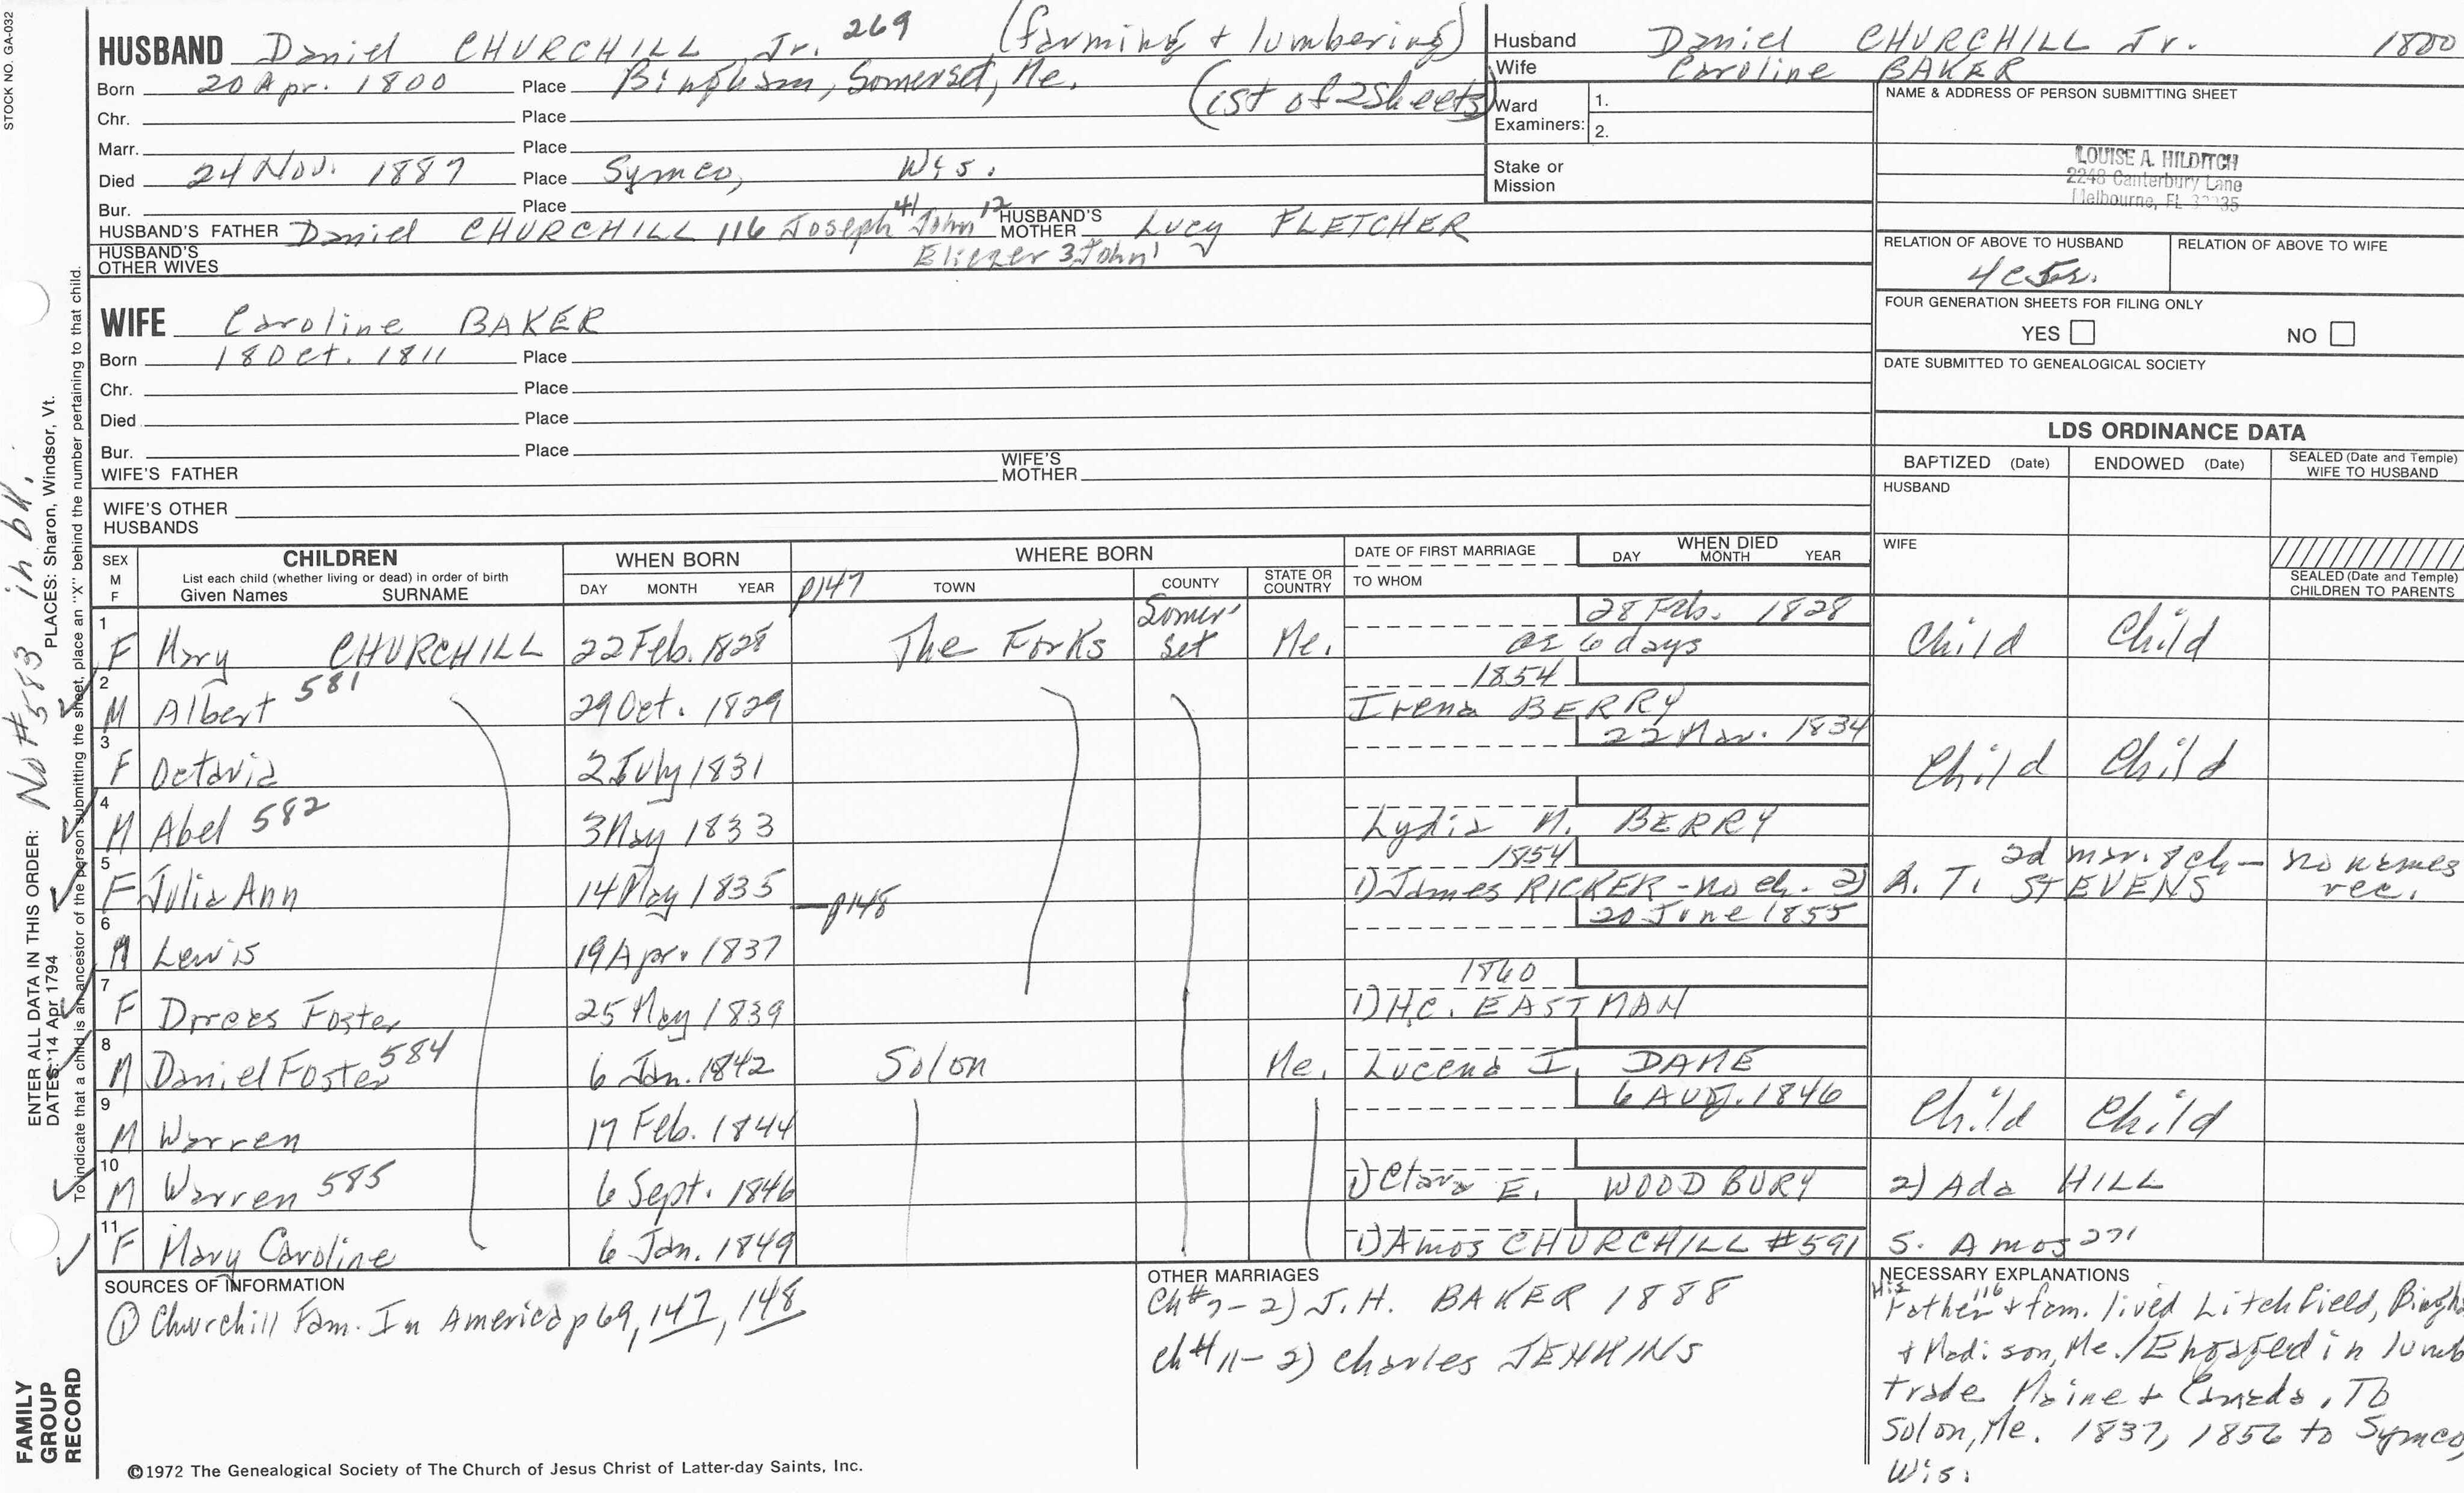 STOCK NO. GA-032
HUSBAND Daniel CHURCHILL Jr. 269 (farming + lumbering)
Born 20 Apr. 1800 Place Bingham, Somerset, Me. (1st of 2 sheets)
Chr. Place
Marr. Place
Died 24 Nov. 1887 Place Symco, Wis.
Bur. Place
HUSBAND'S FATHER Daniel CHURCHILL 116 Joseph 41 John 12 HUSBAND'S MOTHER Lucy FLETCHER
HUSBAND'S OTHER WIVES Eliezer 3 John 1
WIFE Caroline BAKER
Born 18 Oct. 1811 Place
Chr. Place
Died Place
Bur. Place
WIFE'S FATHER WIFE'S MOTHER
WIFE'S OTHER HUSBANDS
Husband Daniel CHURCHILL Jr. 1800
Wife Caroline BAKER
Ward Examiners: 1.
2.
Stake or Mission
NAME & ADDRESS OF PERSON SUBMITTING SHEET
LOUISE A. HILDITCH
2248 Canterbury Lane
Melbourne, FL
RELATION OF ABOVE TO HUSBAND RELATION OF ABOVE TO WIFE
FOUR GENERATION SHEETS FOR FILING ONLY
YES NO
DATE SUBMITTED TO GENEALOGICAL SOCIETY
LDS ORDINANCE DATA
BAPTIZED (Date) ENDOWED (Date) SEALED (Date and Temple) WIFE TO HUSBAND
HUSBAND
WIFE
SEALED (Date and Temple) CHILDREN TO PARENTS
SEX M F CHILDREN WHEN BORN WHERE BORN DATE OF FIRST MARRIAGE WHEN DIED
List each child (whether living or dead) in order of birth
Given Names SURNAME DAY MONTH YEAR p147 TOWN COUNTY STATE OR COUNTRY TO WHOM DAY MONTH YEAR
1 F Mary CHURCHILL 22 Feb. 1828 The Forks Somerset Me. 28 Feb. 1828 ae 6 days Child Child
2 M Albert 581 29 Oct. 1829 1854 Irena BERRY
3 F Octavia 2 July 1831 22 Mar. 1834 Child Child
4 M Abel 582 3 May 1833 Lydia M. BERRY
5 F Julia Ann 14 May 1835 p148 1854 1) James RICKER - no ch. 2) A. T. STEVENS 2d mar. 8 ch - no names rec.
6 M Lewis 19 Apr. 1837 20 June 1855
7 F Foster 25 May 1839 1860 1) H.C. EASTMAN
8 M Daniel Foster 584 6 Jan. 1842 Solon Me. Lucena I. DAME
9 M Warren 17 Feb. 1844 6 Aug. 1846 Child Child
10 M Warren 585 6 Sept. 1846 1) Clara E. WOODBURY 2) Ada HILL
11 F Mary Caroline 6 Jan. 1849 1) Amos CHURCHILL #591 S. Amos 271
SOURCES OF INFORMATION
① Churchill Fam. In America p 69, 147, 148
OTHER MARRIAGES
Ch # 7 - 2) J.H. BAKER 1888
Ch # 11 - 2) Charles JENKINS
NECESSARY EXPLANATIONS
His Father 116 + fam. lived Litchfield,
+ Madison, Me. / Engaged in
trade Maine + Canada. To
Solon, Me. 1837, 1856 to Symco,
Wis.
©1972 The Genealogical Society of The Church of Jesus Christ of Latter-day Saints, Inc.
No # 583 in bk.
ENTER ALL DATA IN THIS ORDER:
DATES: 14 Apr 1794 PLACES: Sharon, Windsor, Vt.
To indicate that a child is an ancestor of the person submitting the sheet, place an "X" behind the number pertaining to that child.
FAMILY GROUP RECORD